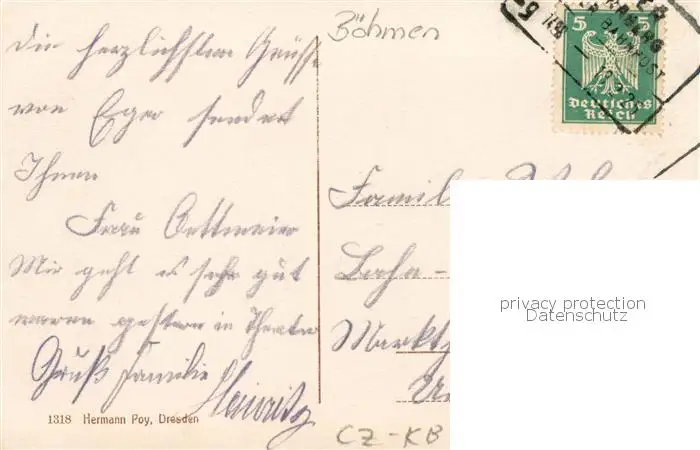 Böhmen
die herzlichsten Grüsse
von Eger sendet
Ihnen
Frau Oettmeier
Mir geht es sehr gut
waren gestern in Theater
Gruß Familie
1318 Hermann Poy, Dresden
5 5
Deutsches
Reich
BAHNPOST
Famil
Markt
privacy protection
Datenschutz
CZ-KB